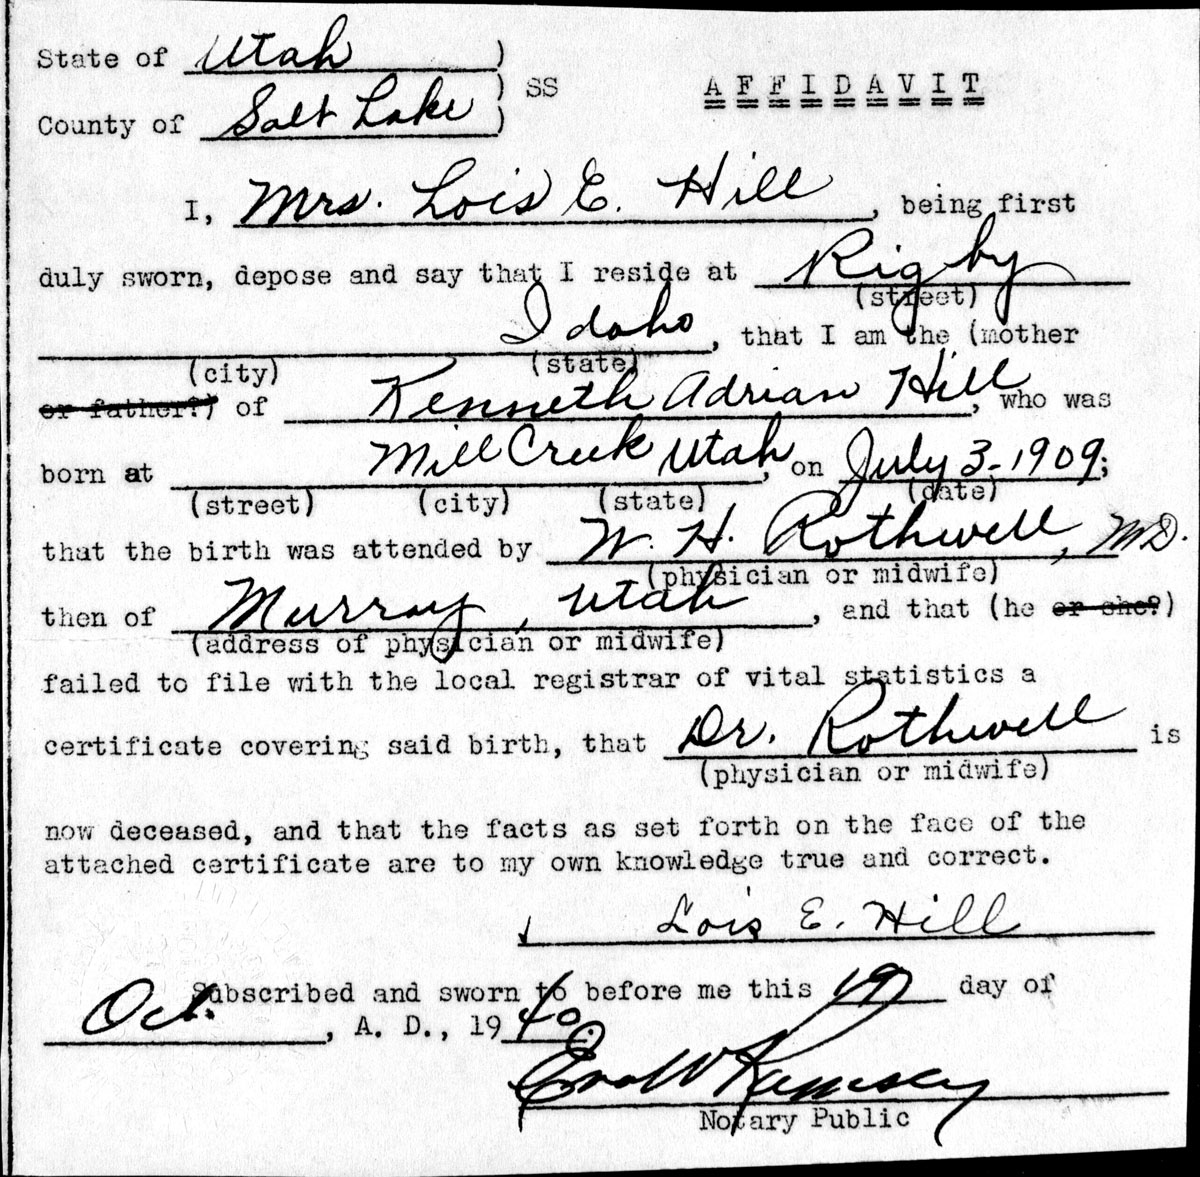 State of Utah )
) SS AFFIDAVIT
County of Salt Lake )
I, Mrs. Lois E. Hill, being first
duly sworn, depose and say that I reside at Rigby
(street)
Idaho, that I am the (mother
(city) (state)
or father?) of Kenneth Adrian Hill, who was
born at Mill Creek Utah, on July 3-1909;
(street) (city) (state) (date)
that the birth was attended by W. H. Rothwell, MD.
(physician or midwife)
then of Murray, Utah, and that (he or she?)
(address of physician or midwife)
failed to file with the local registrar of vital statistics a
certificate covering said birth, that Dr. Rothwell is
(physician or midwife)
now deceased, and that the facts as set forth on the face of the
attached certificate are to my own knowledge true and correct.
Lois E. Hill
Subscribed and sworn to before me this 19 day of
Oct., A. D., 1940.
Eva W Ramsey
Notary Public